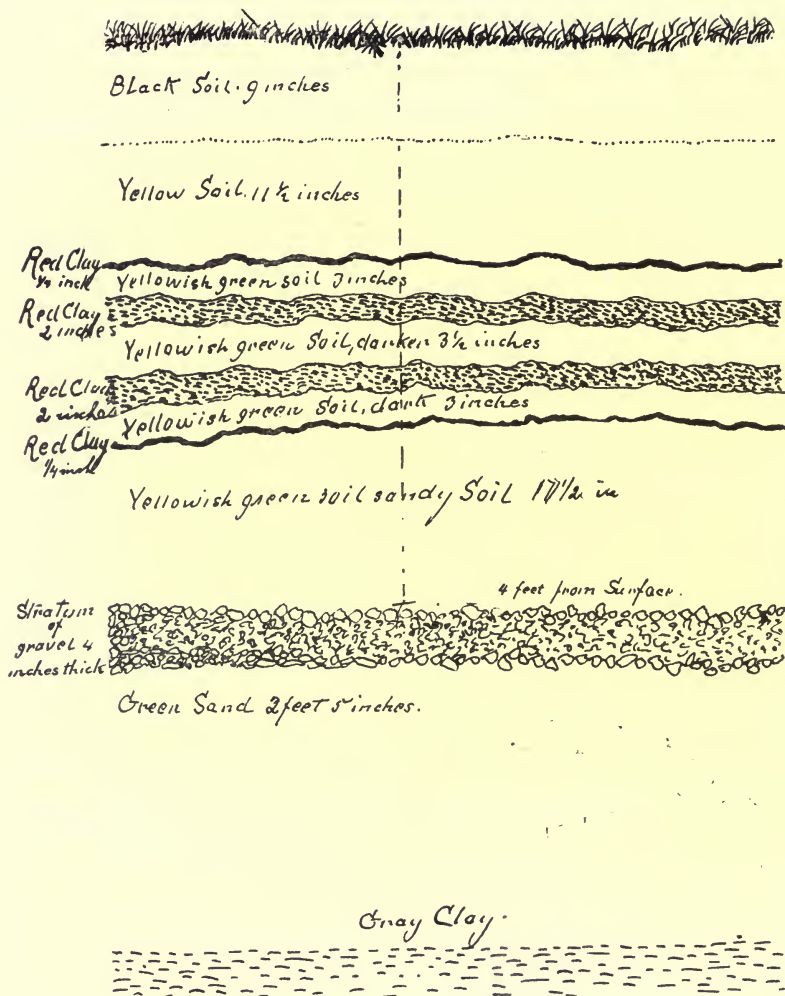 Black Soil. 9 inches
Yellow Soil. 11 1/2 inches
Red Clay
inch
Yellowish green soil 3 inches
Red Clay
2 inches
Yellowish green Soil, darker 3 1/2 inches
Red Clay
2 inches
Yellowish green Soil, dark 3 inches
Red Clay
1/4 inch
Yellowish green soil sandy Soil 1/2 in
4 feet from Surface.
Stratum
of
gravel 4
inches thick
Green Sand 2 feet 5 inches.
Gray Clay.